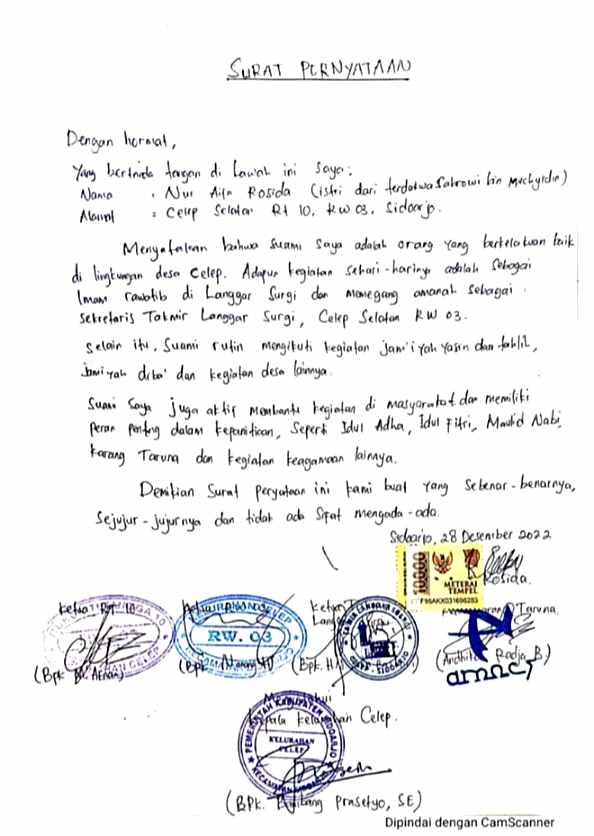 SURAT PERNYATAAN
Dengan hormat,
Yang bertanda tangan di bawah ini saya:
Nama : Nur Aifa Rosida (istri dari terdakwa Sakrowi bin Mochyidin)
Alamat : Celep Selatan Rt 10, RW 03, Sidoarjo.
Menyatakan bahwa suami saya adalah orang yang berkelakuan baik
di lingkungan desa Celep. Adapun kegiatan sehari-harinya adalah sebagai
Imam rawatib di Langgar Surgi dan memegang amanah sebagai
sekretaris Takmir Langgar Surgi, Celep Selatan RW 03.
Selain itu, Suami rutin mengikuti kegiatan jam'iyah yasin dan tahlil,
jam'iyah diba' dan kegiatan desa lainnya.
Suami Saya juga aktif membantu kegiatan di masyarakat dan memiliki
peran penting dalam kepanitiaan, seperti Idul Adha, Idul Fitri, Maulid Nabi,
Karang Taruna dan kegiatan keagamaan lainnya.
Demikian Surat peryataan ini kami buat yang sebenar-benarnya,
sejujur-jujurnya dan tidak ada sifat mengada-ada.
Sidoarjo, 28 Desember 2022
10000
METERAI
TEMPEL
Rosida.
Ketua RT 10
Taruna.
RW. 03
(Bpk.
(Bpk.
(Bpk. H.
(Andhita Radja B.)
Kepala Kelurahan Celep.
PEMERINTAH KABUPATEN SIDOARJO
KELURAHAN
CELEP
KECAMATAN SIDOARJO
(BPK. Prasetyo, SE)
Dipindai dengan CamScanner